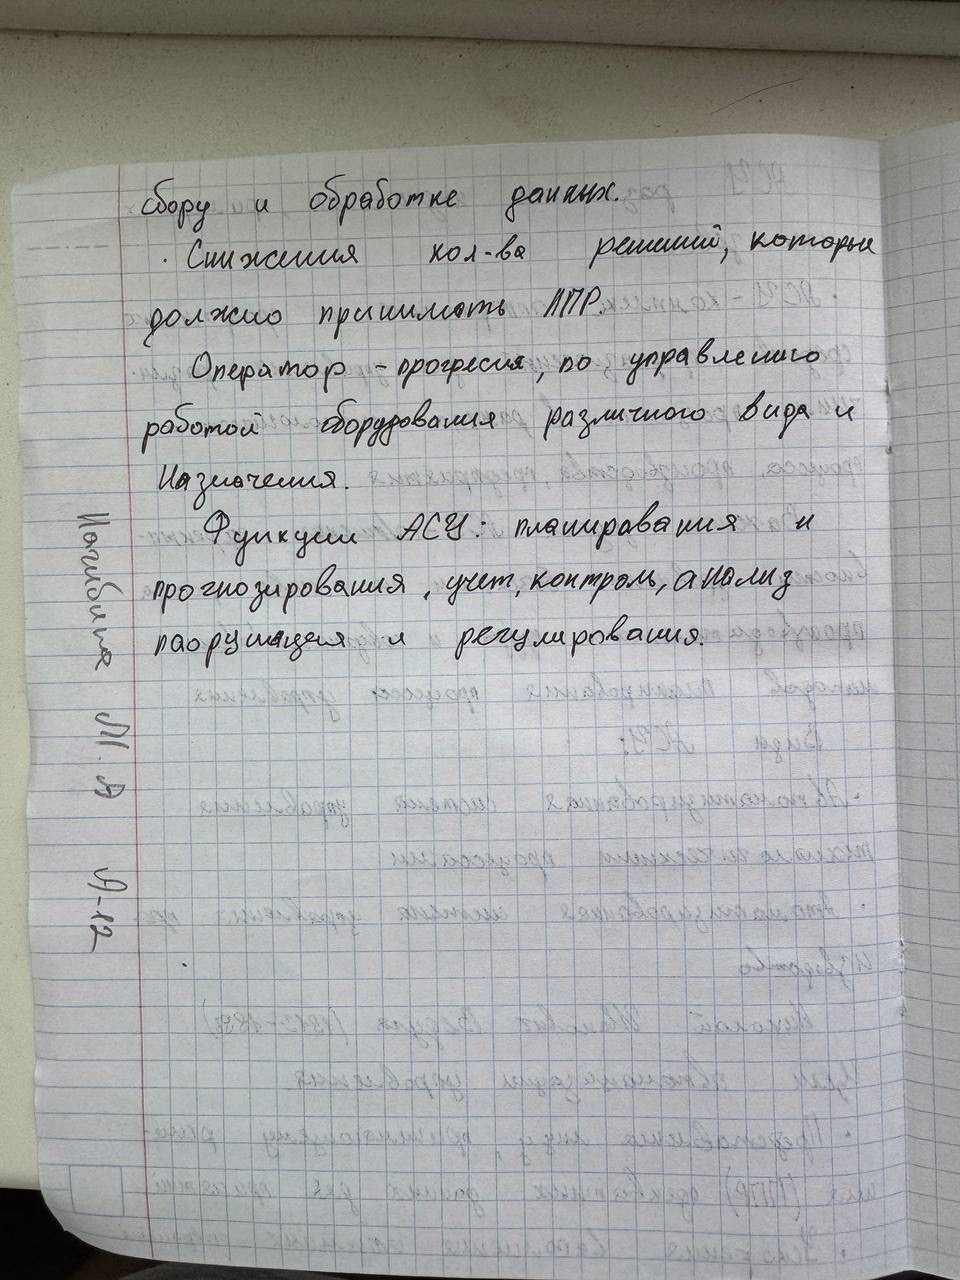 сбору и обработке данных.
· Снижения кол-ва решений, которые
должно принимать ЛПР.
Оператор - прогресия, по управлению
работой оборудования различного вида и
назначения.
Функции АСУ: планирования и
прогнозирования, учет, контроль, анализ
и регулирования.
Нагибина М. А А-12